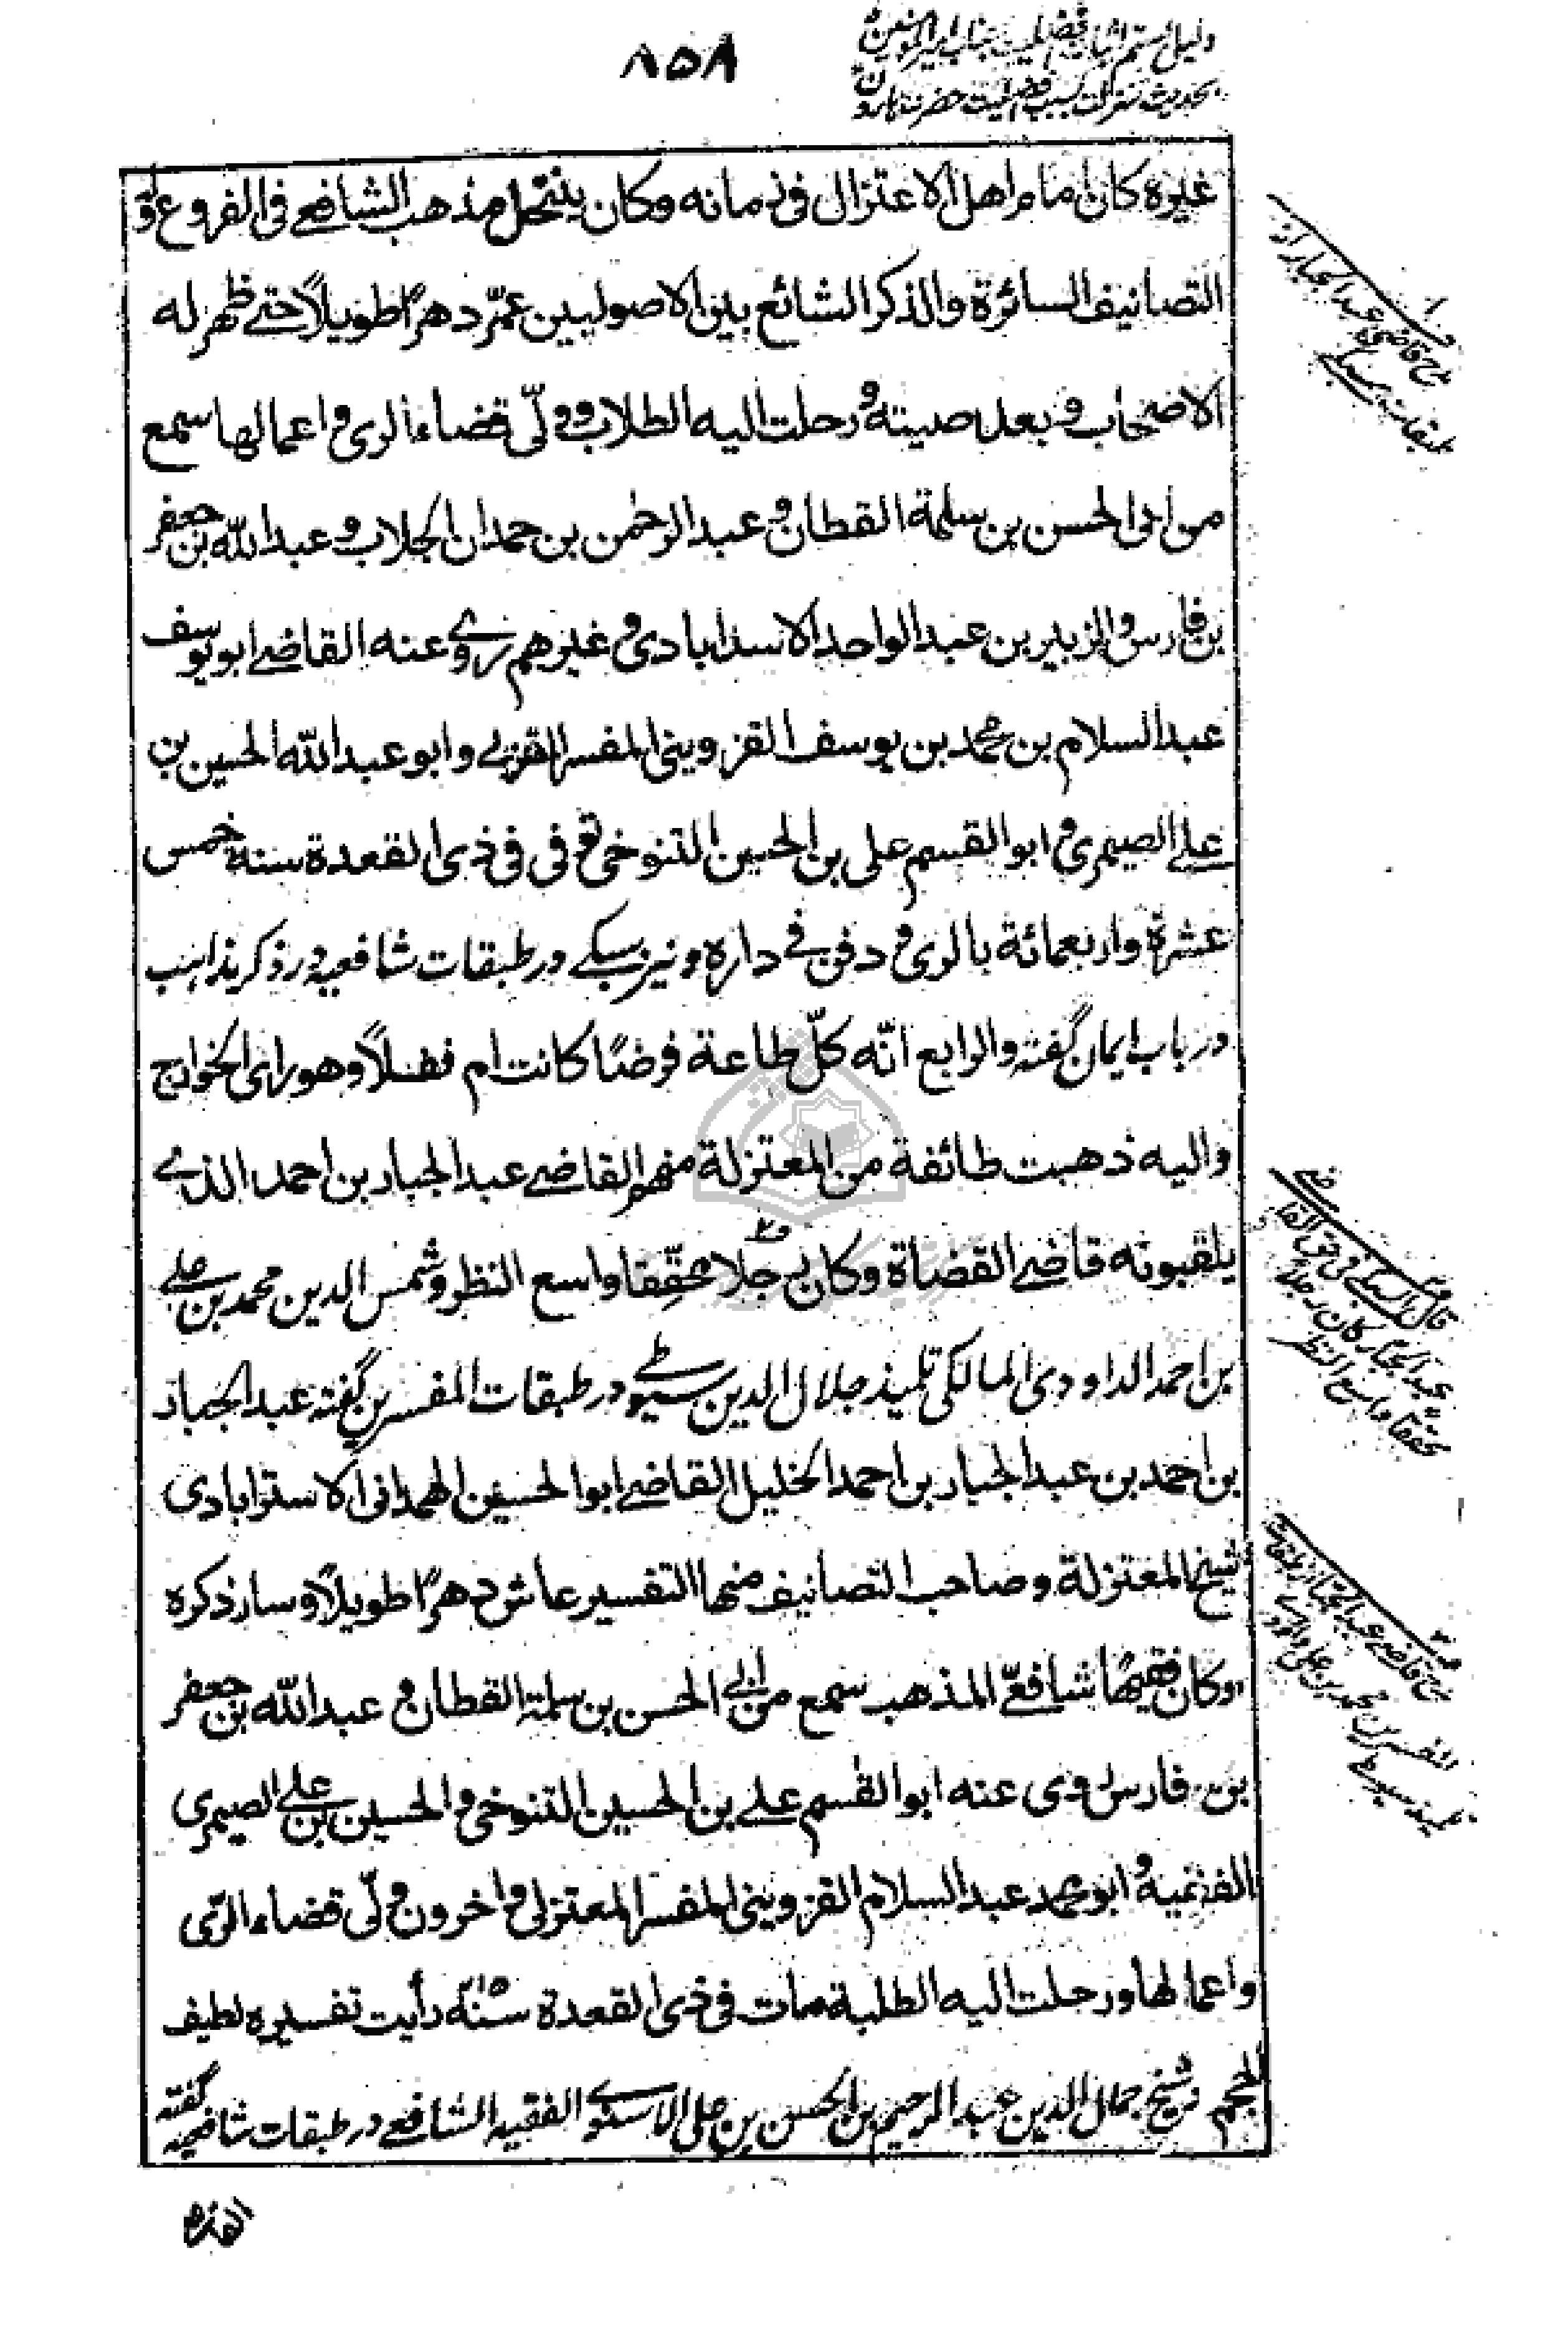 ٨٥٨
دلیل ستم اثبات افضلیت جناب امیرالمؤمنین
بحدیث منزلت بسبب افضلیت حضرت هارون
غيره كان امام اهل الاعتزال فى زمانه وكان ينتحل مذهب الشافعے فى الفروع وله
التصانيف السائرة والذكر الشائع بين الاصوليين عمّر دهرًا طويلًا حتے ظهر له
الاصحاب وبعد صيته ورحلت اليه الطلاب وولّى قضاء الرى واعمالها سمع
من ابى الحسن بن سلمة القطان وعبد الرحمن بن حمدان الجلاب وعبد الله بن جعفر
بن فارس والزبير بن عبد الواحد الاسدابادى وغيرهم روے عنه القاضے ابو يوسف
عبد السلام بن محمد بن يوسف القزوينى المفسر المعتزلے وابو عبد الله الحسين بن
علے الصيمرى وابو القسم على بن الحسين التنوخى توفى فى ذى القعدة سنة خمس
عشرة واربعمائة بالرى ودفن فے داره ونیز سبکے در طبقات شافعیه در ذکر مذاهب
در باب ایمان گفته والرابع انّه كلّ طاعة فرضًا كانت ام نفلًا وهو راى الخوارج
واليه ذهبت طائفة من المعتزلة منهم القاضے عبد الجبار بن احمد الذے
يلقبونه قاضے القضاة وكان رجلا محقّقا واسع النظر وشمس الدين محمد بن علے
بن احمد الداودى المالكى تلميذ جلال الدين سيوطے در طبقات المفسرين گفته عبد الجبار
بن احمد بن عبد الجبار بن احمد الخليل القاضے ابو الحسين الهمدانى الاسترابادى
شيخ المعتزلة وصاحب التصانيف منها التفسير عاش دهرًا طويلًا وسار ذكره
وكان فقيهًا شافعىّ المذهب سمع من ابى الحسن بن سلمة القطان وعبد الله بن جعفر
بن فارس روى عنه ابو القسم علے بن الحسين التنوخى والحسين بن علے الصيمرى
الفقيه وابو محمد عبد السلام القزوينى المفسر المعتزلى واخرون ولّى قضاء الرّى
واعمالها ورحلت اليه الطلبة مات فى ذى القعدة سنة ٤١٥ رأيت تفسيره لطيف
الحجم وشيخ جمال الدين عبد الرحيم بن الحسن بن على الاسنوے الفقيه الشافعے در طبقات شافعیه گفته
القاضے
مدح قاضی عبد الجبار از
طبقات سبکے
قال السبکے فى حق القاضے
عبد الجبار كان رجلا
محققا واسع النظر
مدح قاضے عبد الجبار از طبقات
المفسرین محمد بن علی داودی
تلمیذ سیوطے